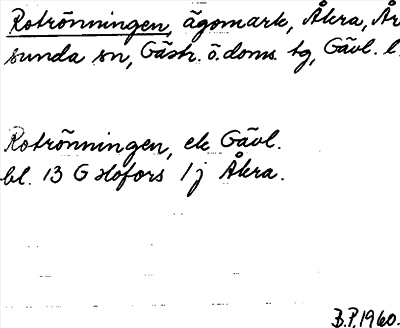 Rotrönningen, ägomark, Åkra, År
sunda sn, Gästr. ö. doms. tg, Gävl. l.
Rotrönningen, ek Gävl.
bl. 13 G Hofors 1 j Åkra.
B.P. 1960.